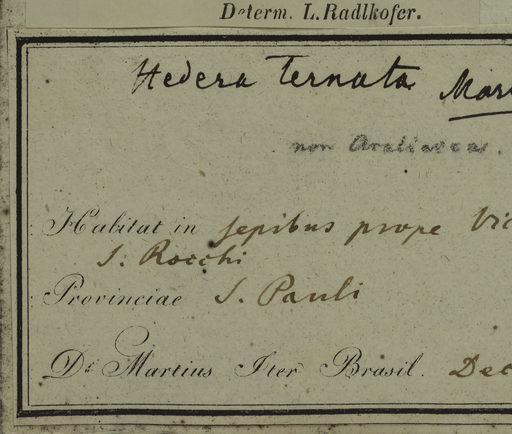 Determ. L. Radlkofer.
Hedera Ternata Mar
non Araliacea.
Habitat in sepibus prope Vic
S. Rocchi
Provinciae S. Pauli
Dr. Martius Iter Brasil. Dec